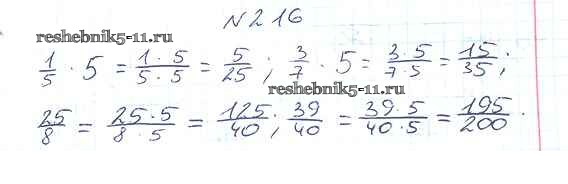 №216
reshebnik5-11.ru
1/5 · 5 = 1·5/5·5 = 5/25; 3/7 · 5 = 3·5/7·5 = 15/35;
reshebnik5-11.ru
25/8 = 25·5/8·5 = 125/40; 39/40 = 39·5/40·5 = 195/200.